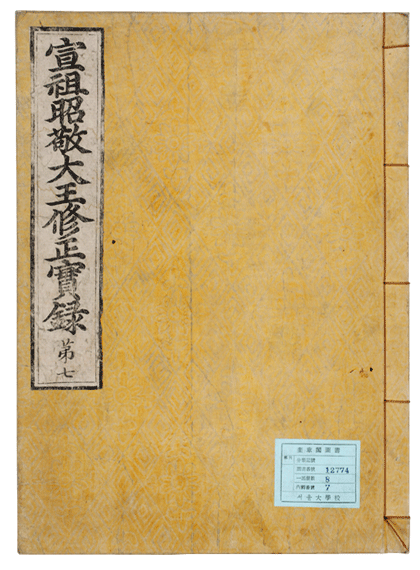 宣祖昭敬大王修正實録 第七
奎章閣圖書
番號
圖書番號 12774
一部冊數 8
內冊番號 7
서울大學校